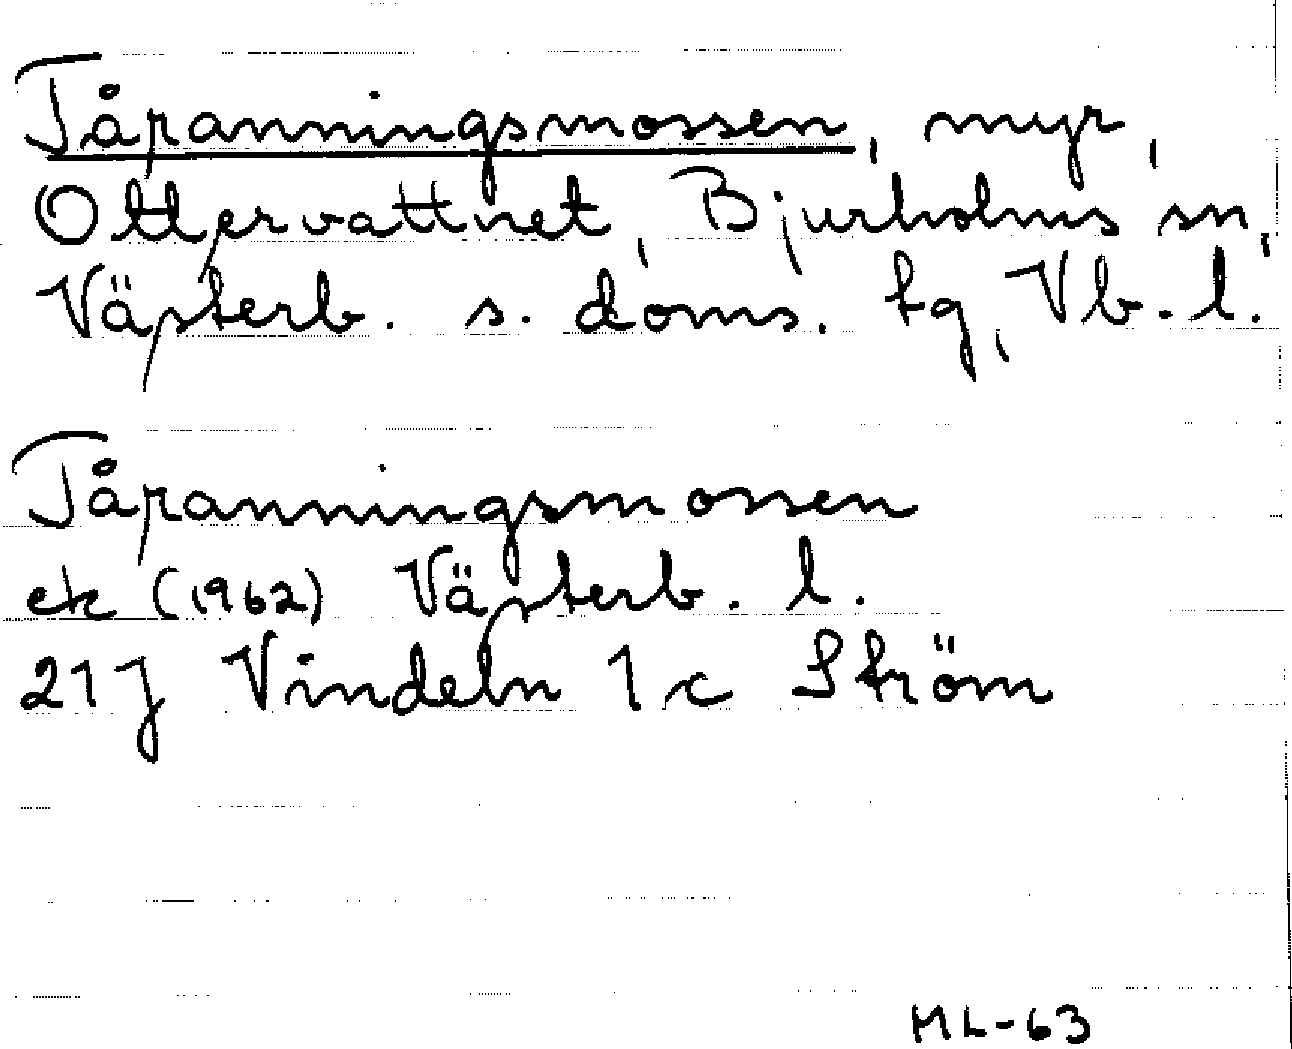 Tåranningsmossen, myr,
Ottervattnet, Bjurholms sn,
Västerb. s. doms. tg, Vb. l.
Tåranningsmossen
ek (1962) Västerb. l.
21 J Vindeln 1 c Ström
ML-63